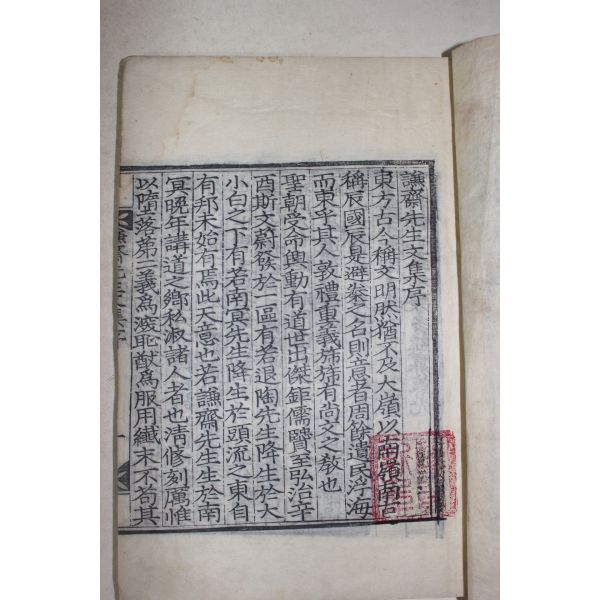 謙齋先生文集序
東方古今稱文明然猶不及大嶺以南嶺南古
稱辰國辰是避秦之名則意者周餘遺民浮海
而東乎其人敦禮重義旆旆有尚文之教也
聖朝受命輿動有道世出傑鉅儒醫至弘治辛
酉斯文蔚發於一區有若退陶先生降生於大
小白之下有若南冥先生降生於頭流之東自
有邦未始有焉此天意也若謙齋先生生於南
冥晩年講道之鄉私淑諸人者也淸修刻厲惟
以墮落第二義爲深恥猷爲服用纖末不苟其
謙齋先生文集序